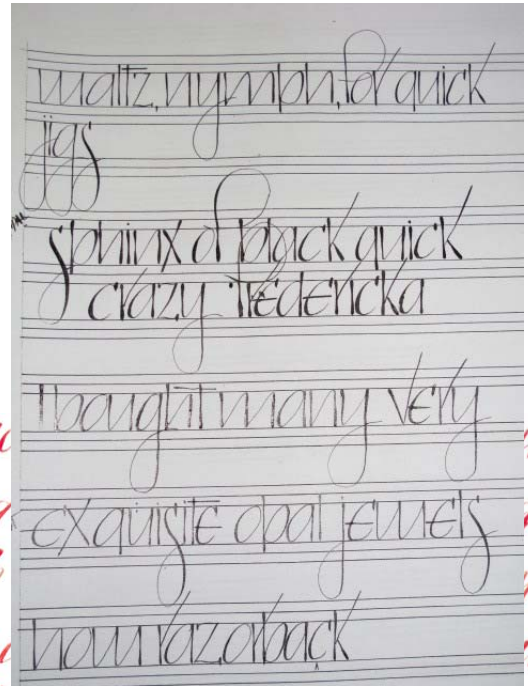 waltz, nymph, for quick
jigs
sphinx of black quick
crazy fredericka
I bought many very
exquisite opal jewels
how razorback